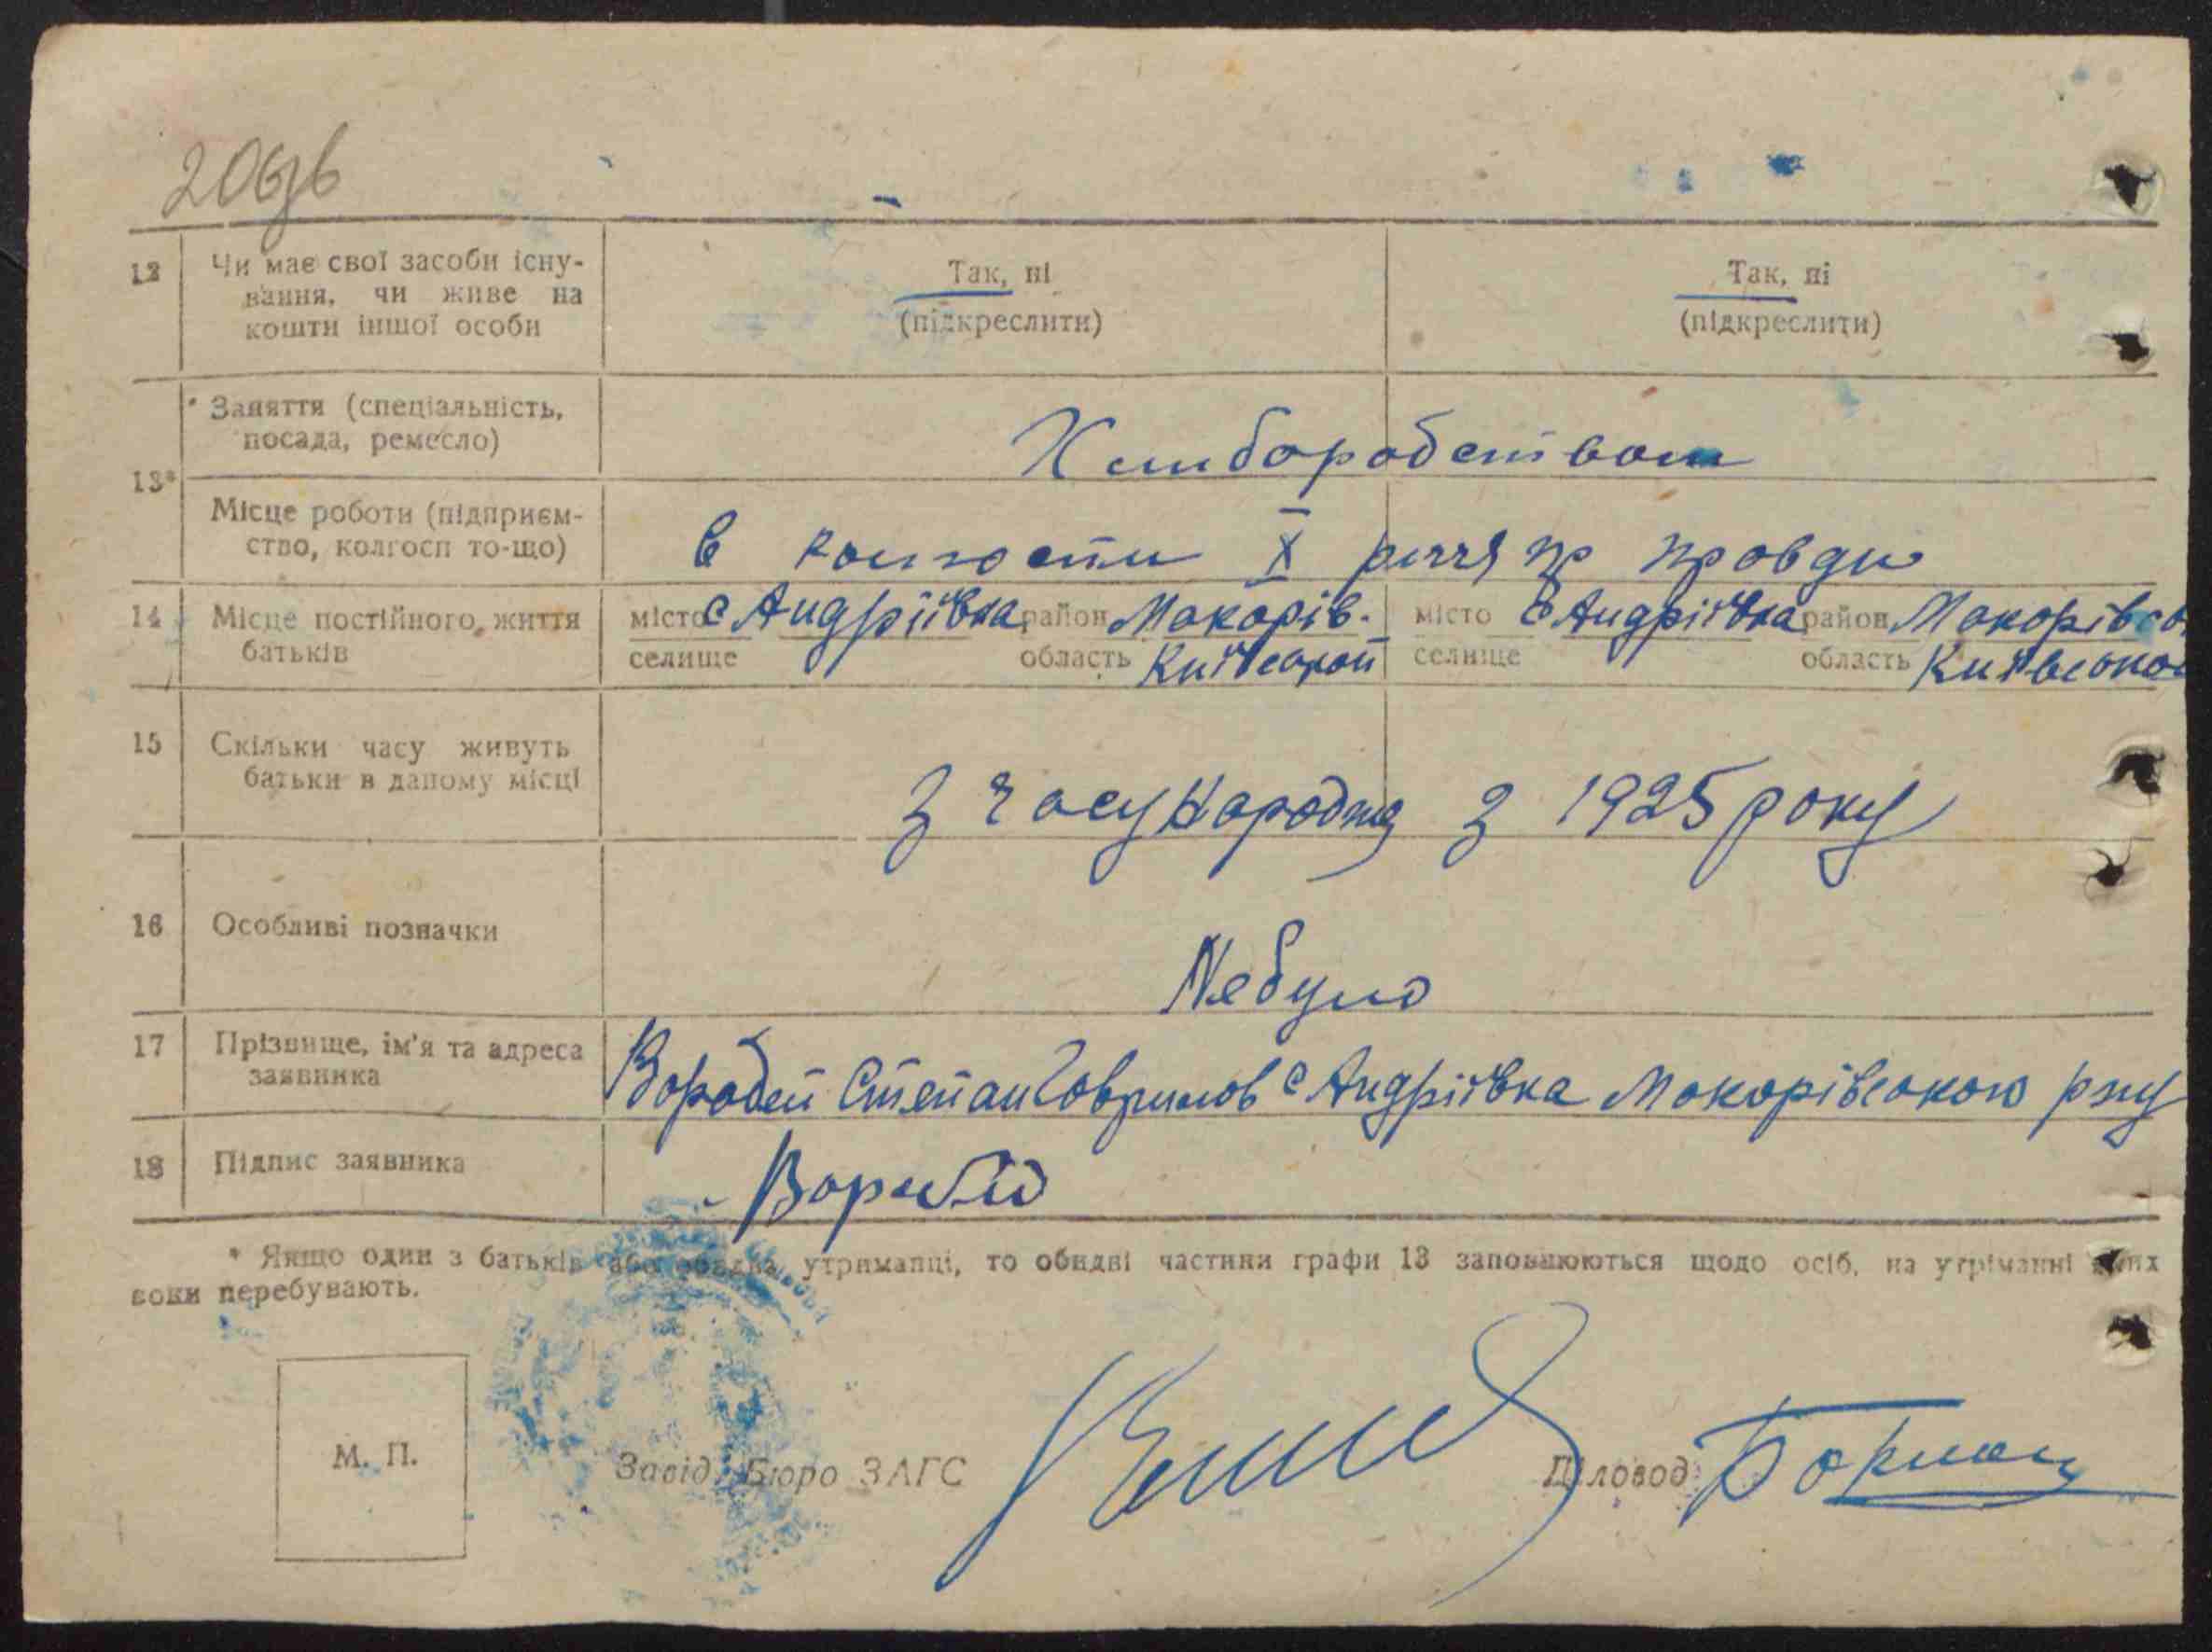 206зв
12 Чи має свої засоби існу-
вання, чи живе на
кошти іншої особи
Так, ні
(підкреслити)
Так, ні
(підкреслити)
13*
Заняття (спеціальність,
посада, ремесло)
Хлиборобством
Місце роботи (підприєм-
ство, колгосп то-що)
в колгоспи X річчя правди
14 Місце постійного життя
батьків
місто с Андріївка район Макарів.
селище область Київськой
місто с Андріївка район Макорівсь
селище область Київсько
15 Скільки часу живуть
батьки в даному місці
З часу народж з 1925 року
16 Особливі позначки
Небуло
17 Прізвище, ім'я та адреса
заявника
Воробей Степан Гаврилов с Андріївка Макорівського р-ну
18 Підпис заявника
Воробій
* Якщо один з батьків або обидва утриманці, то обидві частини графи 13 заповнюються щодо осіб, на утріманні яких
вони перебувають.
М. П.
Завід. Бюро ЗАГС
Діловод